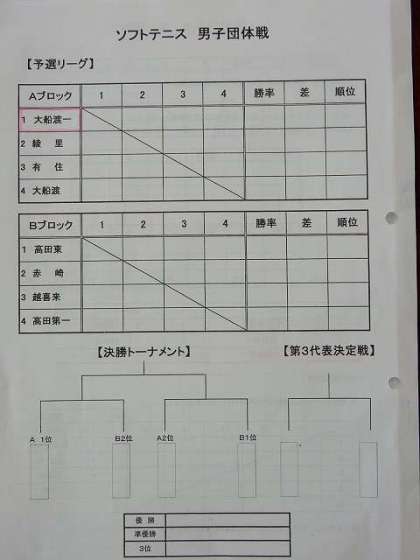 ソフトテニス 男子団体戦
【予選リーグ】
Aブロック 1 2 3 4 勝率 差 順位
1 大船渡一
2 綾 里
3 有 住
4 大船渡
Bブロック 1 2 3 4 勝率 差 順位
1 高田東
2 赤 崎
3 越喜来
4 高田第一
【決勝トーナメント】 【第3代表決定戦】
A 1位 B2位 A2位 B1位
優 勝
準優勝
3位